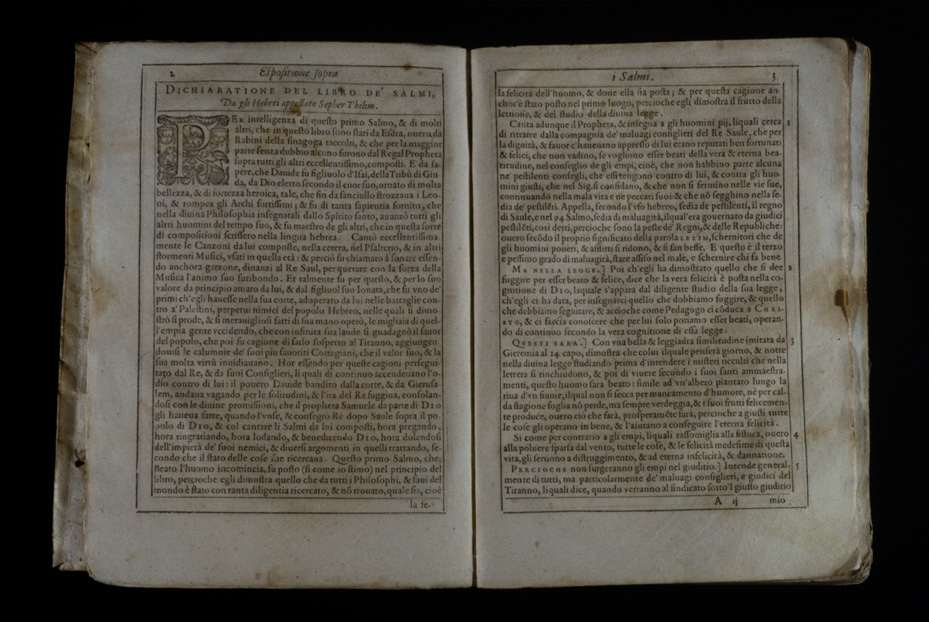 2 Espositione sopra
DICHIARATIONE DEL LIBRO DE' SALMI,
Da gli Hebrei appellato Sepher Thilim.
PER intelligenza di questo primo Salmo, & di molti
altri, che in questo libro sono stati da Esdra, ouero da
Rabini della sinagoga raccolti, & che per la maggior
parte senza dubbio alcuno furono dal Regal Propheta
sopra tutti gli altri eccellentissimo, composti. E da sa-
pere, che Dauide fu figliuolo d'Isai, della Tribù di Giu
da, da Dio eletto secondo il cuor suo, ornato di molta
bellezza, & di fortezza heroica, tale, che sin da fanciullo strozzaua i Leo-
ni, & rompea gli Archi fortissimi; & fu di tanta sapientia fornito, che
nella diuina Philosophia insegnatali dallo Spirito santo, auanzò tutti gli
altri huomini del tempo suo, & fu maestro de gli altri, che in questa sorte
di compositioni scrissero nella lingua hebrea. Cantò eccellentissima-
mente le Canzoni da lui composte, nella cetera, nel Psalterio, & in altri
stormenti Musici, vsati in quella età: & perciò fu chiamato à sonare essen-
do anchora garzone, dinanzi al Re Saul, per quetare con la forza della
Musica l'animo suo furibondo. Et talmente fu per questo, & per lo suo
valore da principio amato da lui, & dal figliuol suo Ionata, che fu vno de'
primi ch'egli hauesse nella sua corte, adoperato da lui nelle battaglie con-
tro a' Palestini, perpetui nimici del popolo Hebreo, nelle quali si dimo
strò si prode, & si merauigliosi fatti di sua mano operò, le migliaia di quel-
l'empia gente vccidendo, che con infinita sua laude si guadagnò il fauore
del popolo, che poi fu cagione di farlo sospetto al Tiranno, aggiungen
doui si le calumnie de' suoi piu fauoriti Cortegiani, che il valor suo, & la
sua molta virtù inuidiauano. Hor essendo per queste cagioni persegui-
tato dal Re, & da suoi Consiglieri, li quali di continuo accendeuano l'o-
dio contro di lui: il pouero Dauide bandito dalla corte, & da Gierusa
lem, andaua vagando per le solitudini, & l'ira del Re fuggiua, consolan-
dosi con le diuine promissioni, che il propheta Samuele da parte di DIO
gli haueua fatte, quando l'vnse, & consegrò Rè dopo Saule sopra il po
polo di DIO, & col cantare li Salmi da lui composti, hora pregando,
hora ringratiando, hora lodando, & benedicendo DIO, hora dolendosi
dell'impietà de' suoi nemici, & diuersi argomenti in quelli trattando, se-
condo che il stato delle cose sue ricercaua. Questo primo Salmo, che,
Beato l'huomo incomincia, fu posto (si come io stimo) nel principio del
libro, percioche egli dimostra quello che da tutti i Philosophi, & saui del
mondo è stato con tanta diligentia ricercato, & nō trouato, quale sia, cioè
la fe-
i Salmi. 3
la felicità dell'huomo, & doue ella sia posta; & per questa cagione an
chor'è stato posto nel primo luogo, percioche egli dimostra il frutto della
lettione, & del studio della diuina legge.
Canta adunque il Propheta, & insegna a gli huomini pij, liquali cerca 1
di ritrarre dalla compagnia de' maluagi consiglieri del Re Saule, che per
la dignità, & fauor c'haueuano appresso di lui erano reputati ben fortunati
& felici, che non vadino, se vogliono esser beati della vera & eterna bea-
titudine, nel conseglio de gli empi, cioè, che non habbino parte alcuna
ne' pestilenti consegli, che essi tengono contro di lui, & contra gli huo
mini giusti, che nel Sig. si confidano, & che non si fermino nelle vie sue,
continuando nella mala vita e ne peccati suoi: & che nō segghino nella se-
dia de' pestilēti. Appella, secondo l'vso hebreo, sedia de pestilenti, il regno
di Saule, e nel 94 Salmo, sedia di maluagità, ilqual'era gouernato da giudici
pestilēti, così detti, perciche sono la peste de' Regni, & delle Republiche:
ouero secōdo il proprio significato della parola schernitori che de
gli huomini poueri, & afflitti si ridono, & si fan beffe. E questo è il terzo
e pessimo grado di maluagità, stare assiso nel male, e schernire chi fa bene.
MA NELLA LEGGE.] Poi ch'egli ha dimostrato quello che si dee 2
fuggire per esser beato & felice, dice che la vera felicità è posta nella co-
gnitione di DIO, laquale s'appara dal diligente studio della sua legge,
ch'egli ci ha data, per insegnarci quello che dobbiamo fuggire, & quello
che debbiamo seguitare, & accioche come Pedagogo ci cōduca a CHRI-
STO, & ci faccia conoscere che per lui solo possiamo esser beati, operan-
do di continuo secondo la vera cognitione di essa legge.
QVESTI SARA'.] Con vna bella & leggiadra similitudine imitata da 3
Gieremia al 14. capo, dimostra che colui ilquale penserà giorno, & notte
nella diuina legge studiando prima d'intendere i misteri occulti che nella
lettera si rinchiudono, & poi di viuere secondo i suoi santi ammaestra-
menti, questo huomo sarà beato: simile ad vn'albero piantato lungo la
riua d'vn fiume, ilqual non si secca per mancamento d'humore, nè per cal-
da stagione foglia nō perde, ma sempre verdeggia, & i suoi frutti felicemen-
te produce, ouero ciò che farà, prosperamēte farà, percioche a giusti tutte
le cose gli operano in bene, & l'aiutano a conseguire l'eterna felicità.
Si come per contrario a gli empi, liquali rassomiglia alla ouero 4
alla poluere sparsa dal vento, tutte le cose, & le felicità medesime di questa
vita, gli seruono a distruggimento, & ad eterna infelicità, & dannatione.
PERCIOCHE non surgeranno gli empi nel giuditio.] Intende general- 5
mente di tutti, ma particolarmente de' maluagi consiglieri, e giudici del
Tiranno, liquali dice, quando verranno al sindicato sotto'l giusto giuditio
A ij mio